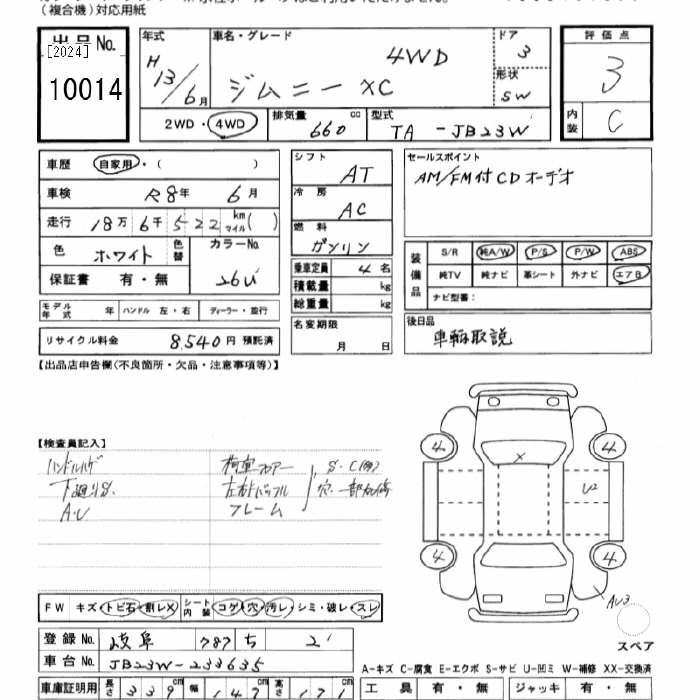 (複合機)対応用紙
出品No.
[2024]
10014
年式
H13/6月
車名・グレード
4WD
ジムニー XC
ドア
3
形状
SW
評価点
3
内装
C
2WD・4WD
排気量
660
cc
型式
TA-JB23W
車歴
自家用・( )
車検
R8年 6月
走行
18万 6千 522 km マイル( )
色
ホワイト
色替
カラーNo.
26U
保証書 有・無
モデル年式 年 ハンドル 左・右 ディーラー・並行
リサイクル料金 8,540円 預託済
シフト
AT
冷房
AC
燃料
ガソリン
乗車定員 4名
積載量 kg
総重量 kg
名変期限
月 日
セールスポイント
AM/FM付CDオーデオ
装備品
S/R 純A/W P/S P/W ABS
純TV 純ナビ 革シート 外ナビ エアB
ナビ型番:
後日品
車輌取説
【出品店申告欄(不良箇所・欠品・注意事項等)】
【検査員記入】
ハンドルハゲ
下廻りS.
A・U
荷車フロアー
左右バッフル
フレーム
S・C(腐)
穴・一部
4
4
4
4
X
U2
AU3
スペア
FW キズ・トビ石・割レX
シート内装 コゲ・穴・汚レ・シミ・破レ・スレ
登録No. 岐阜 787 ち 2
車台No. JB23W-233635
車庫証明用 長さ 339cm 幅 147cm 高さ 171cm
A-キズ C-腐食 E-エクボ S-サビ U-凹ミ W-補修 XX-交換済
工具 有・無 ジャッキ 有・無